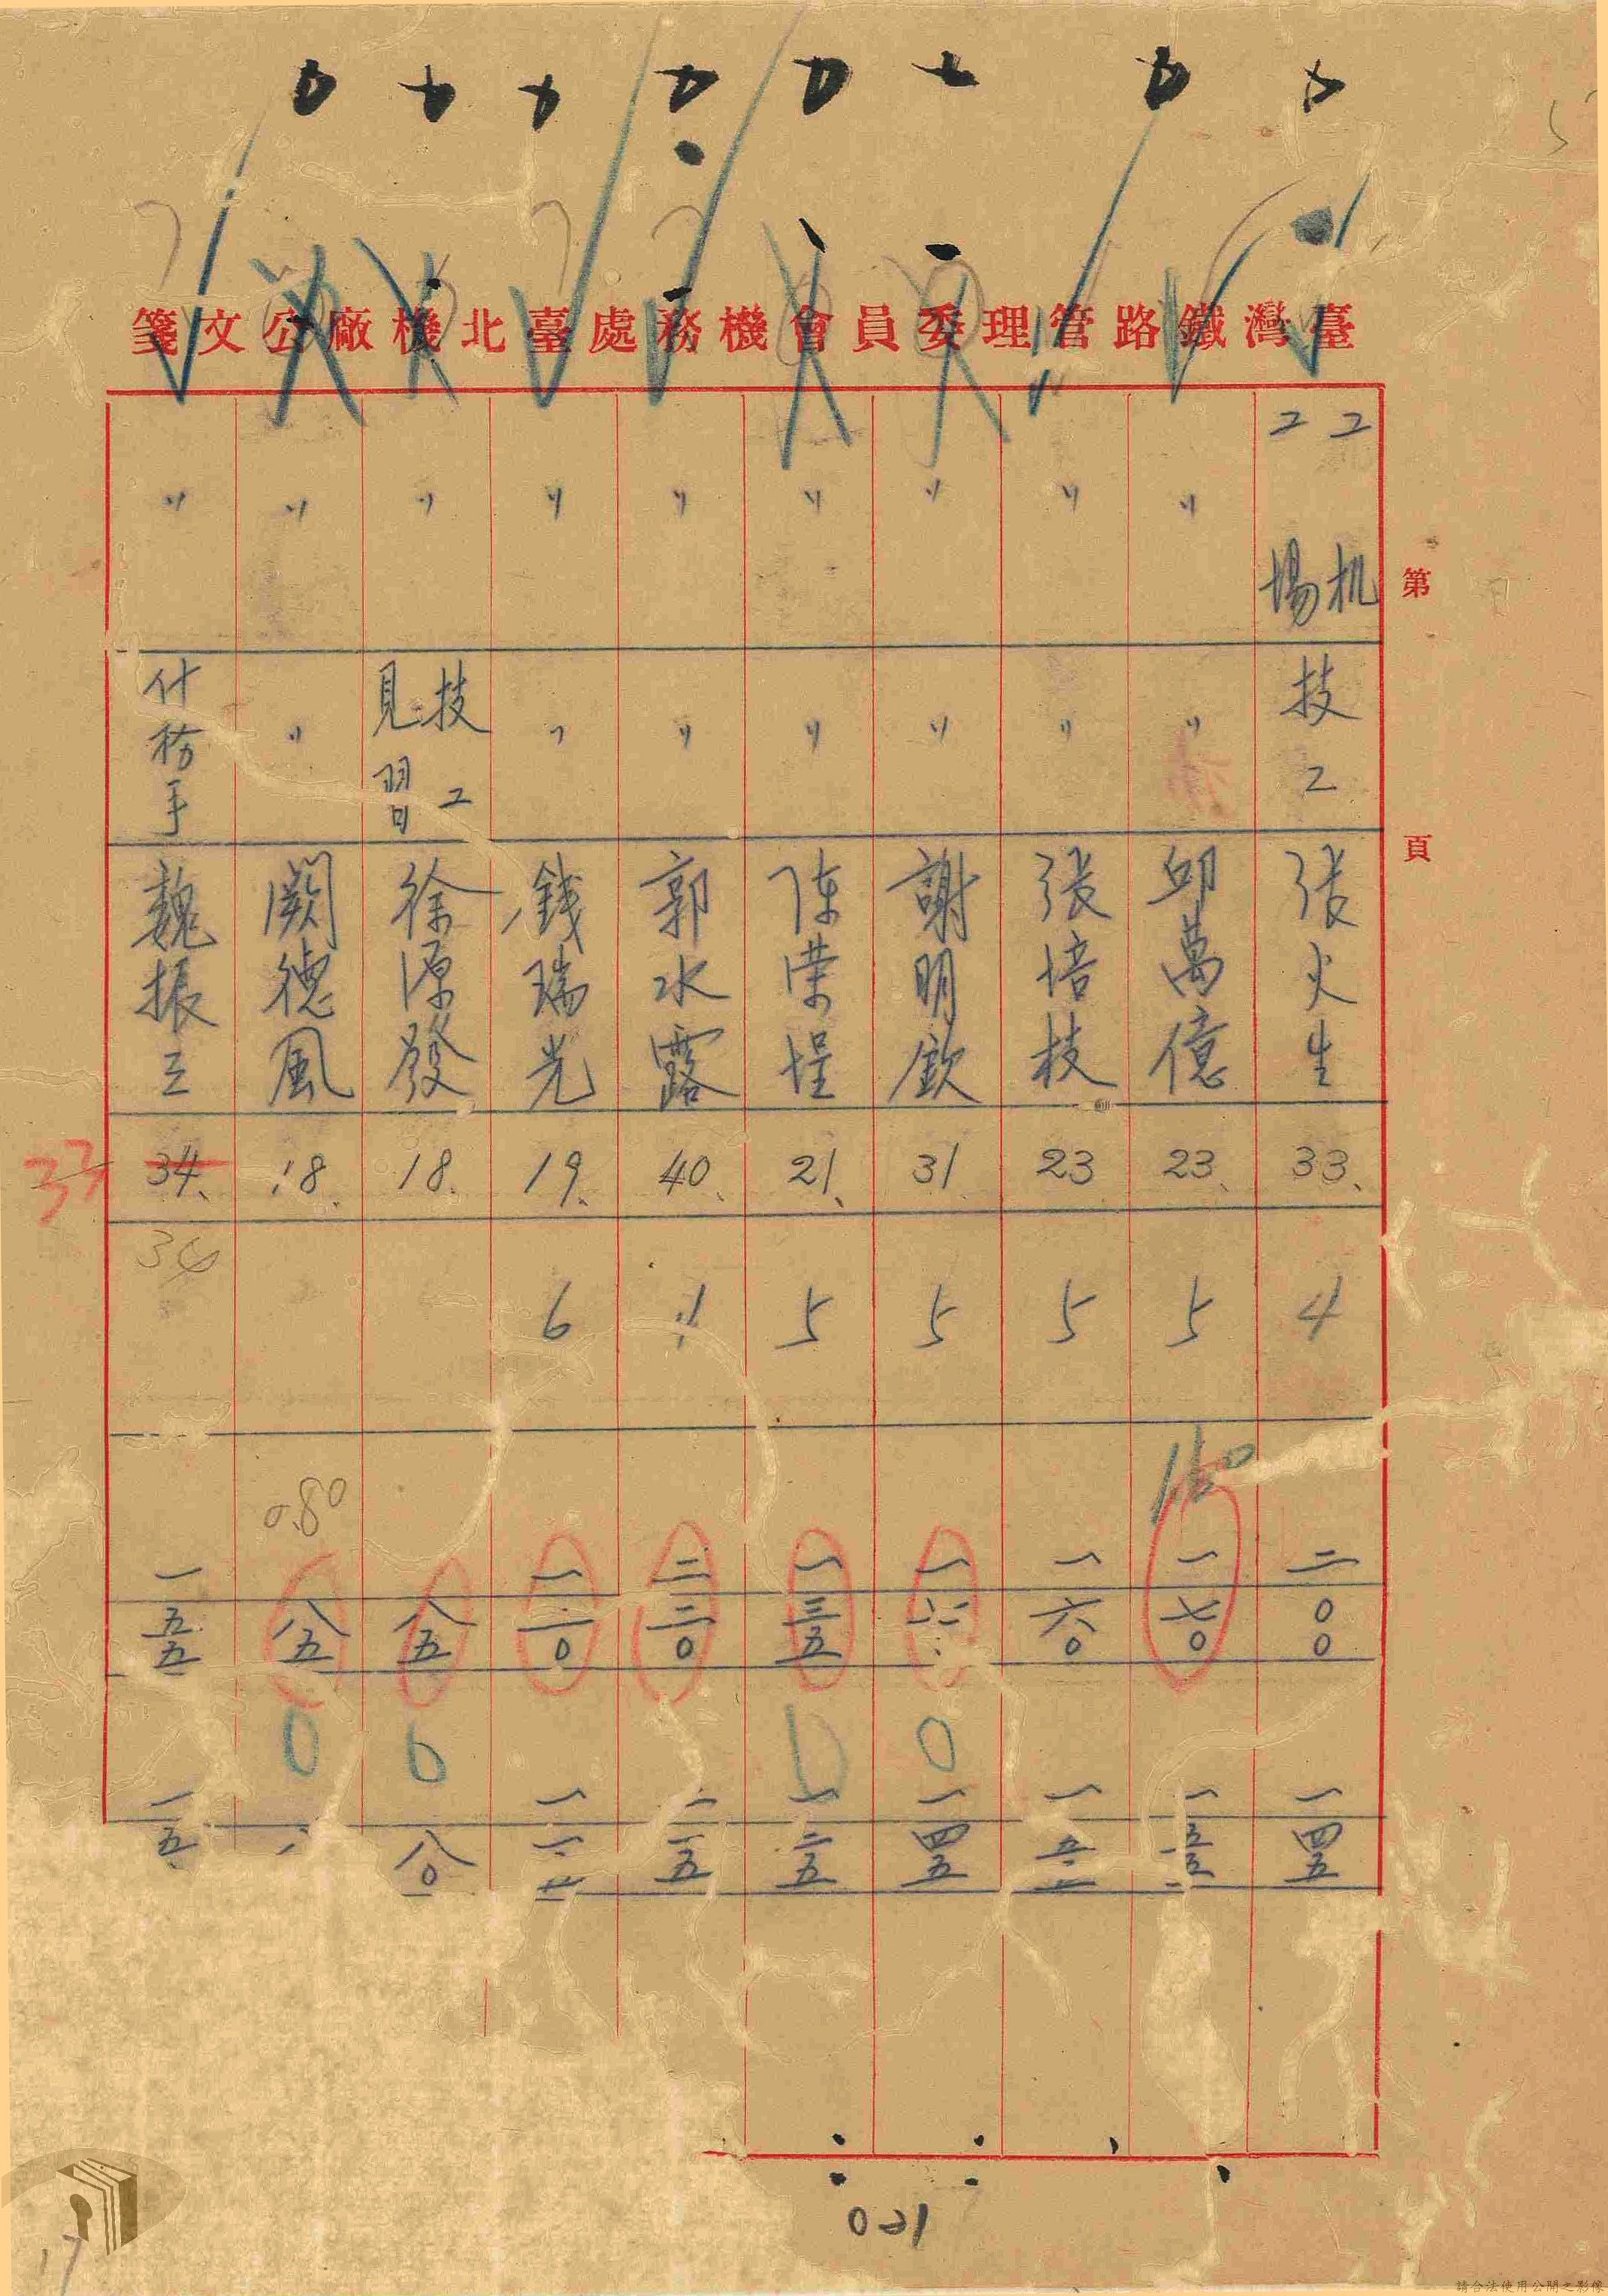 臺灣鐵路管理委員會機務處臺北機廠公文箋
第 頁
工机
工場
技工
張火生
33.
4
二
〇〇
一
四五
〃
〃
邱萬億
23.
5
一
七〇
一
五五
〃
〃
張培枝
23
5
一
六〇
一
〃
〃
謝明欽
31.
5
一
一
四五
〃
〃
陳荣埕
21.
5
一
三五
一
二五
〃
〃
郭水露
40.
二
三〇
二
一五
〃
〃
錢瑞光
19.
6
一
二〇
一
〃
技工
見習
徐源發
18.
八五
八〇
〃
〃
闕德風
18.
0.80
八五
八
〃
什務手
魏振立
34.
33
34
一
五五
一
五
17
請合法使用公開之影像